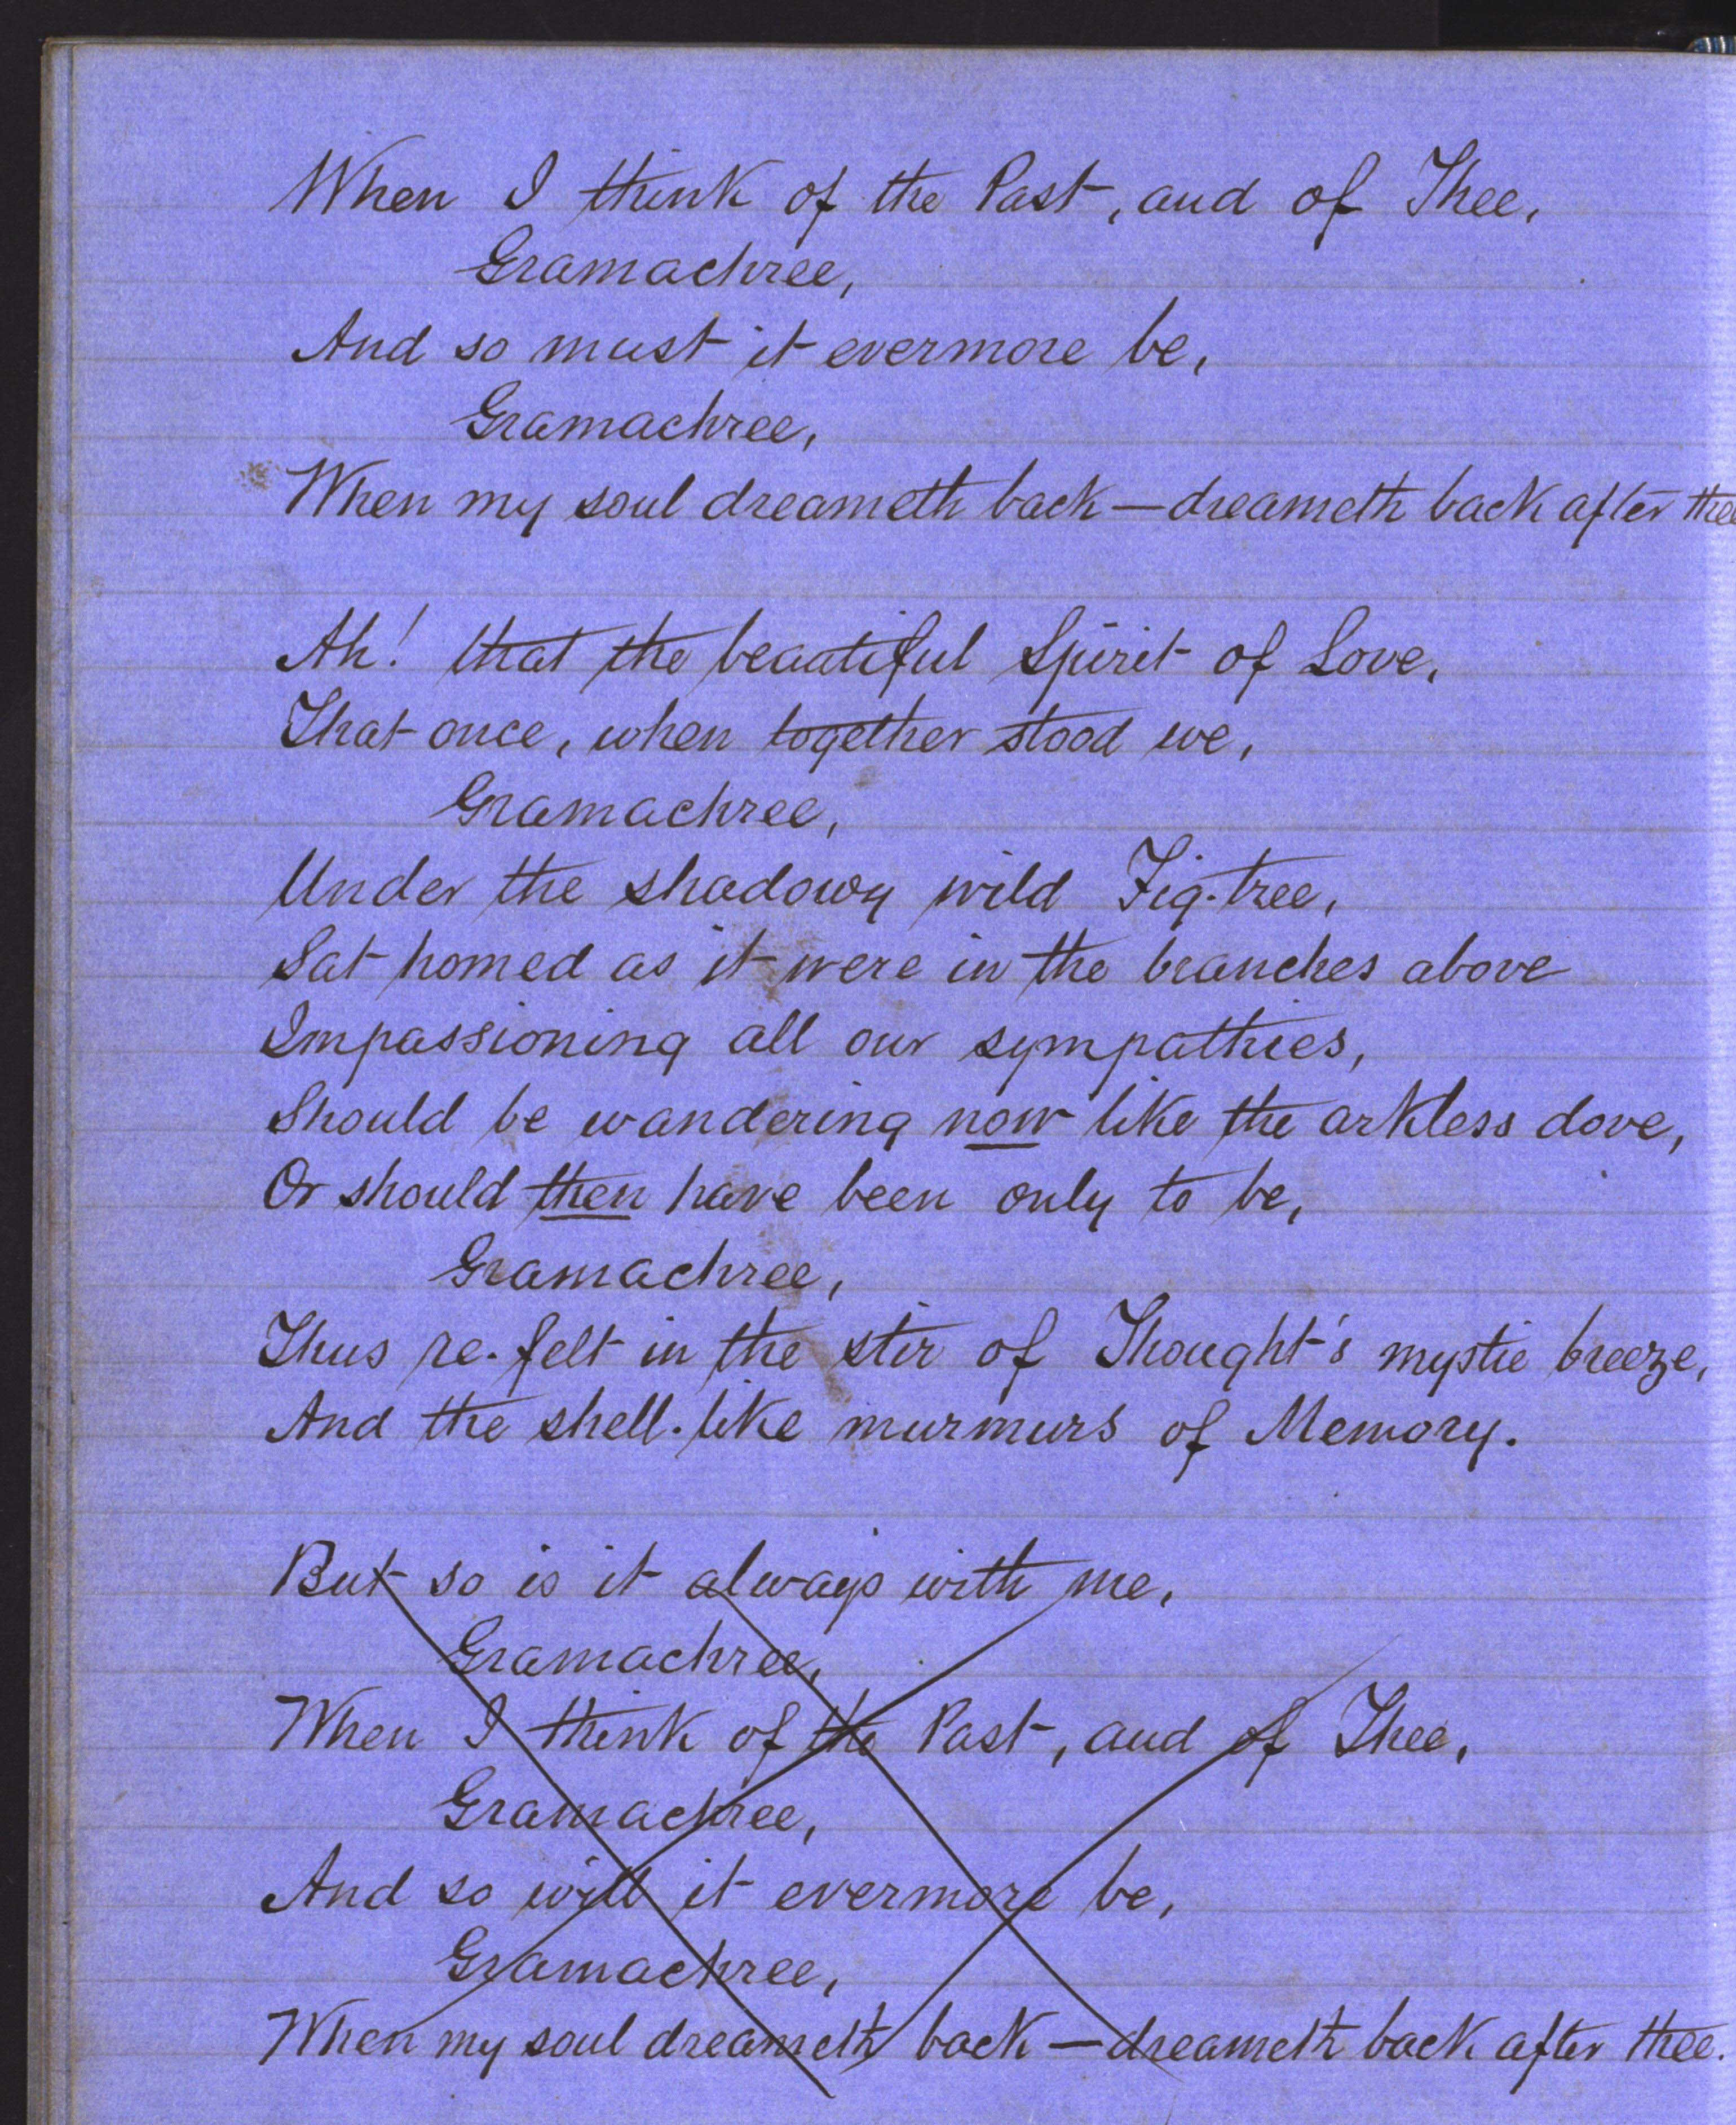 When I think of the Past, and of Thee,
Gramachree,
And so must it evermore be,
Gramachree,
When my soul dreameth back — dreameth back after thee
Ah! that the beautiful Spirit of Love,
That once, when together stood we,
Gramachree,
Under the shadowy wild Fig-tree,
Sat homed as it were in the branches above
Impassioning all our sympathies,
Should be wandering now like the arkless dove,
Or should then have been only to be,
Gramachree,
Thus re-felt in the stir of Thought's mystic breeze,
And the shell-like murmurs of Memory.
But so is it always with me,
Gramachree,
When I think of the Past, and of Thee,
Gramachree,
And so will it evermore be,
Gramachree,
When my soul dreameth back — dreameth back after thee.